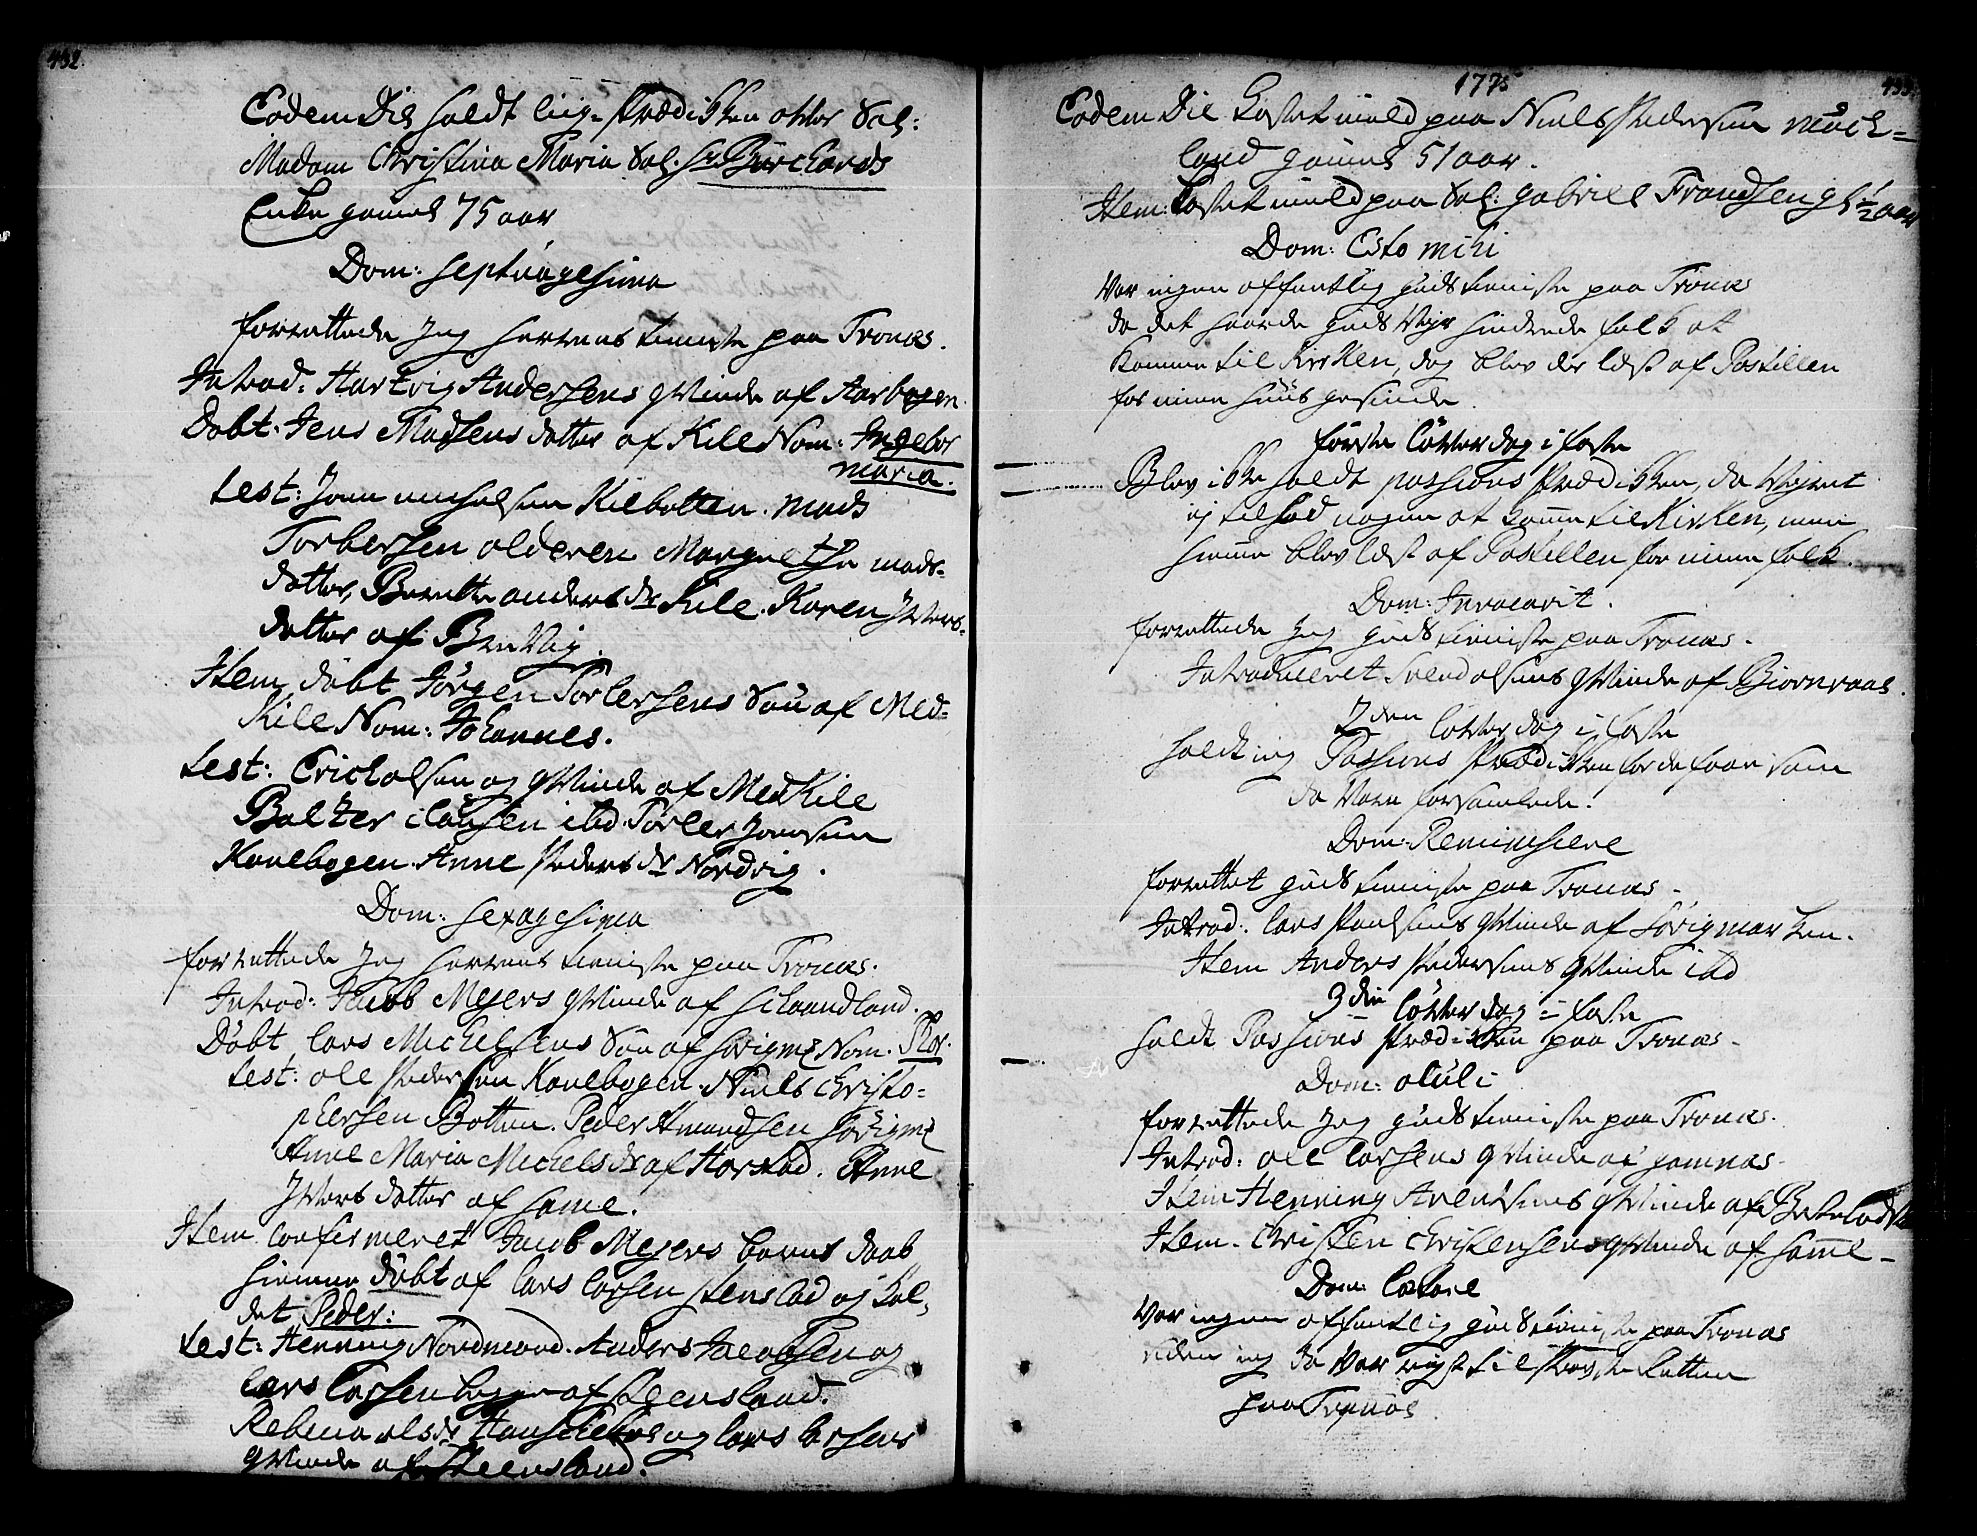 432
Eodem Die holdt liig-Prædikken over Sal:
Madam Christina Maria Sal. Hr Burchards
Enke gamel 75 aar
Dom: Septuagesima
forrettede Jeg Herrens tieniste paa Tronæs.
Introd: Hartvig Andersens qvinde af Aarbogen.
Døbt: Jens Madsens datter af Kile Nom: Ingebor
maria.
test: Joen michelsen Kilbotten. mads
Torbersen olderen Margrethe mads-
datter, Berette anders dr Kile. Karen Ivers-
datter af
Item døbt Jörgen Torlersens Søn af Med-
Kile Nom: Johannes.
test: Erich olsen og qvinde af Medkile
Baltzer Clausen ibd. Torler Joensen
Kanebogen. Anne Peders dr Nordvig.
Dom: Sexagesima
forrettede Jeg Herrens tieniste paa Tronæs.
Introd: Jacob Mejers qvinde af
Döbt Lars Michelsens Søn af Nom.
test: ole Pedersen Kanebogen. Niels Christo-
phersen Botten. Peder Amundsen
Anne Maria Michels dr af Harstad. Anne
Ivers datter af same.
Item confirmeret Jacob Mejers barns daab
hiemme døbt af Lars Larsen Stensland og kal-
det Peder:
test: Henning Nordmand. Anders Jacobsen og
Lars Larsen begge af Steensland.
Rebecca ols dr og Lars Larsens
qvinde af Steensland.
1775
433
Eodem Die kastet muld paa Niels Pedersen
land gamel 51 aar.
Item: kastet muld paa Sal: Gabriel Frandsen g: 1/2 aar
Dom: Esto mihi
Var ingen offentlig Guds tieniste paa Tronæs
da det haarde Guds Vejr hindrede folk at
komme til Kirken, dog blev der læst af Postillen
for mine huus gesinde.
første Löverdag i faste
Blev ikke holdt passions Prædikken, da Vejret
ej tillod nogen at komme til Kirken, men
hiemme blev læst af Postillen for mine folk.
Dom: Invocavit.
forrettede Jeg Guds tieniste paa Tronæs.
Introduceret Svend olsens qvinde af Biornraae.
2den Löverdag i faste
holdt jeg Passions Prædikken for de faae som
da Vare forsamlede.
Dom: Reminiscere
forrettet Guds tieniste paa Tronæs.
Introd: Lars Paulsens qvinde af Sörigmarken.
Item Anders Pedersens qvinde ibd
3die Löverdag i faste
holdt Passions Prædikken paa Tronæs.
Dom: oculi
forrettede Jeg Guds tieniste paa Tronæs.
Introd: ole Larsens qvinde af Gamnæs.
Item Henning Arentsens qvinde af
Item. Christen Christensens qvinde af same.
Dom: Lætare
Var ingen offentlig Guds tieniste paa Tronæs
siden jeg da Var rejst til
paa Tronæs.